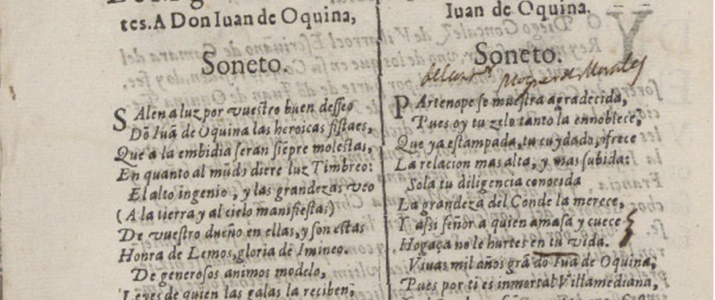 tes. A Don Iuan de Oquina,
Soneto.
SAlen a luz por vuestro buen desseo
Dō Iuā de Oquina las heroicas fiestas,
Que a la embidia seran siēpre molestas,
En quanto al mūdo diere luz Timbreo:
El alto ingenio, y las grandezas veo
(A la tierra y al cielo manifiestas)
De vuestro dueño en ellas, y son estas
Honra de Lemos, gloria de Imineo.
De generosos animos modelo,
Leyes de quien las galas la reciben;
Iuan de Oquina.
Soneto.
PArtenope se muestra agradecida,
Pues oy tu zelo tanto la ennoblece;
Que ya estampada, tu cuydado, ofrece
La relacion mas alta, y mas subida:
Sola tu diligencia conocida
La grandeza del Conde la merece,
Y assi señor a quien amasa y cuece
Hogaça no le hurtes en tu vida.
Viuas mil años grā dō Iuā de Oquina,
Pues por ti es inmortal Villamediana,